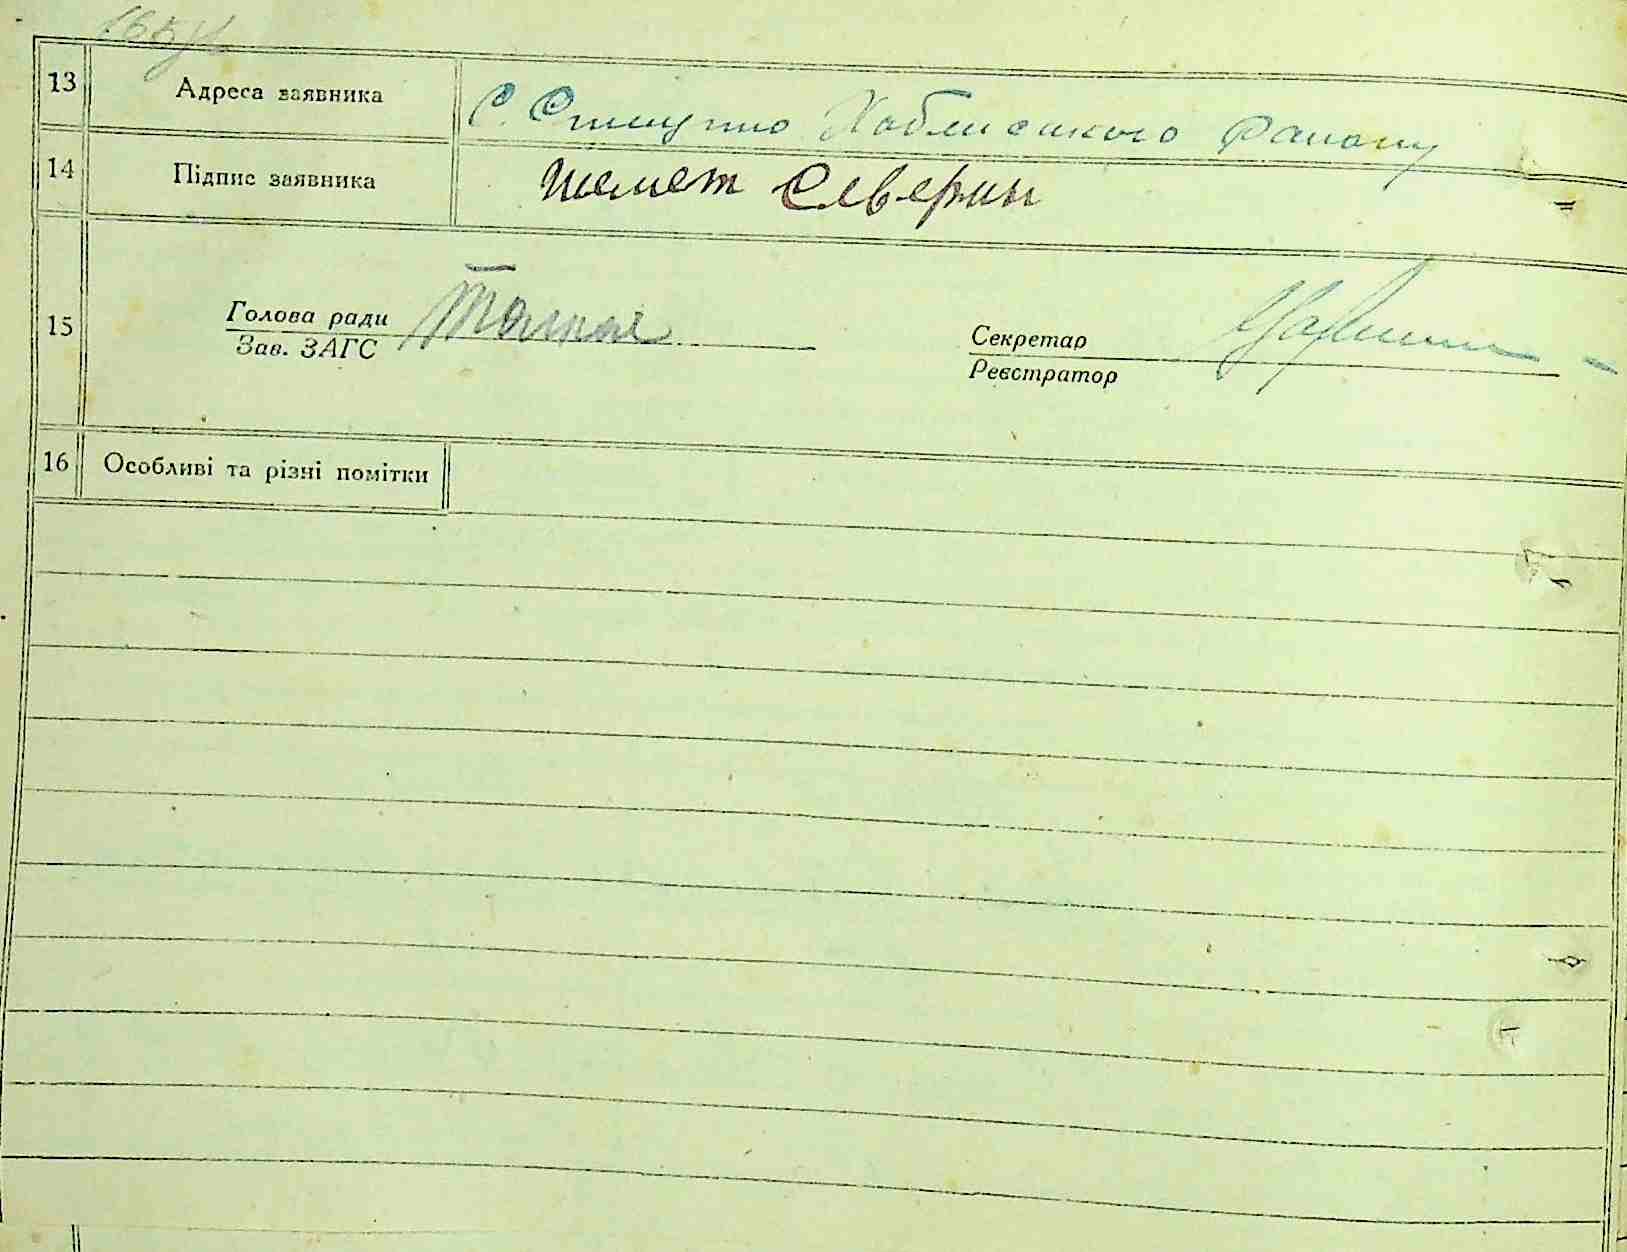 13 Адреса заявника С. Хабенського Району
14 Підпис заявника Шемет Северин
15
Голова ради
Зав. ЗАГС
Секретар
Реєстратор
16 Особливі та різні помітки